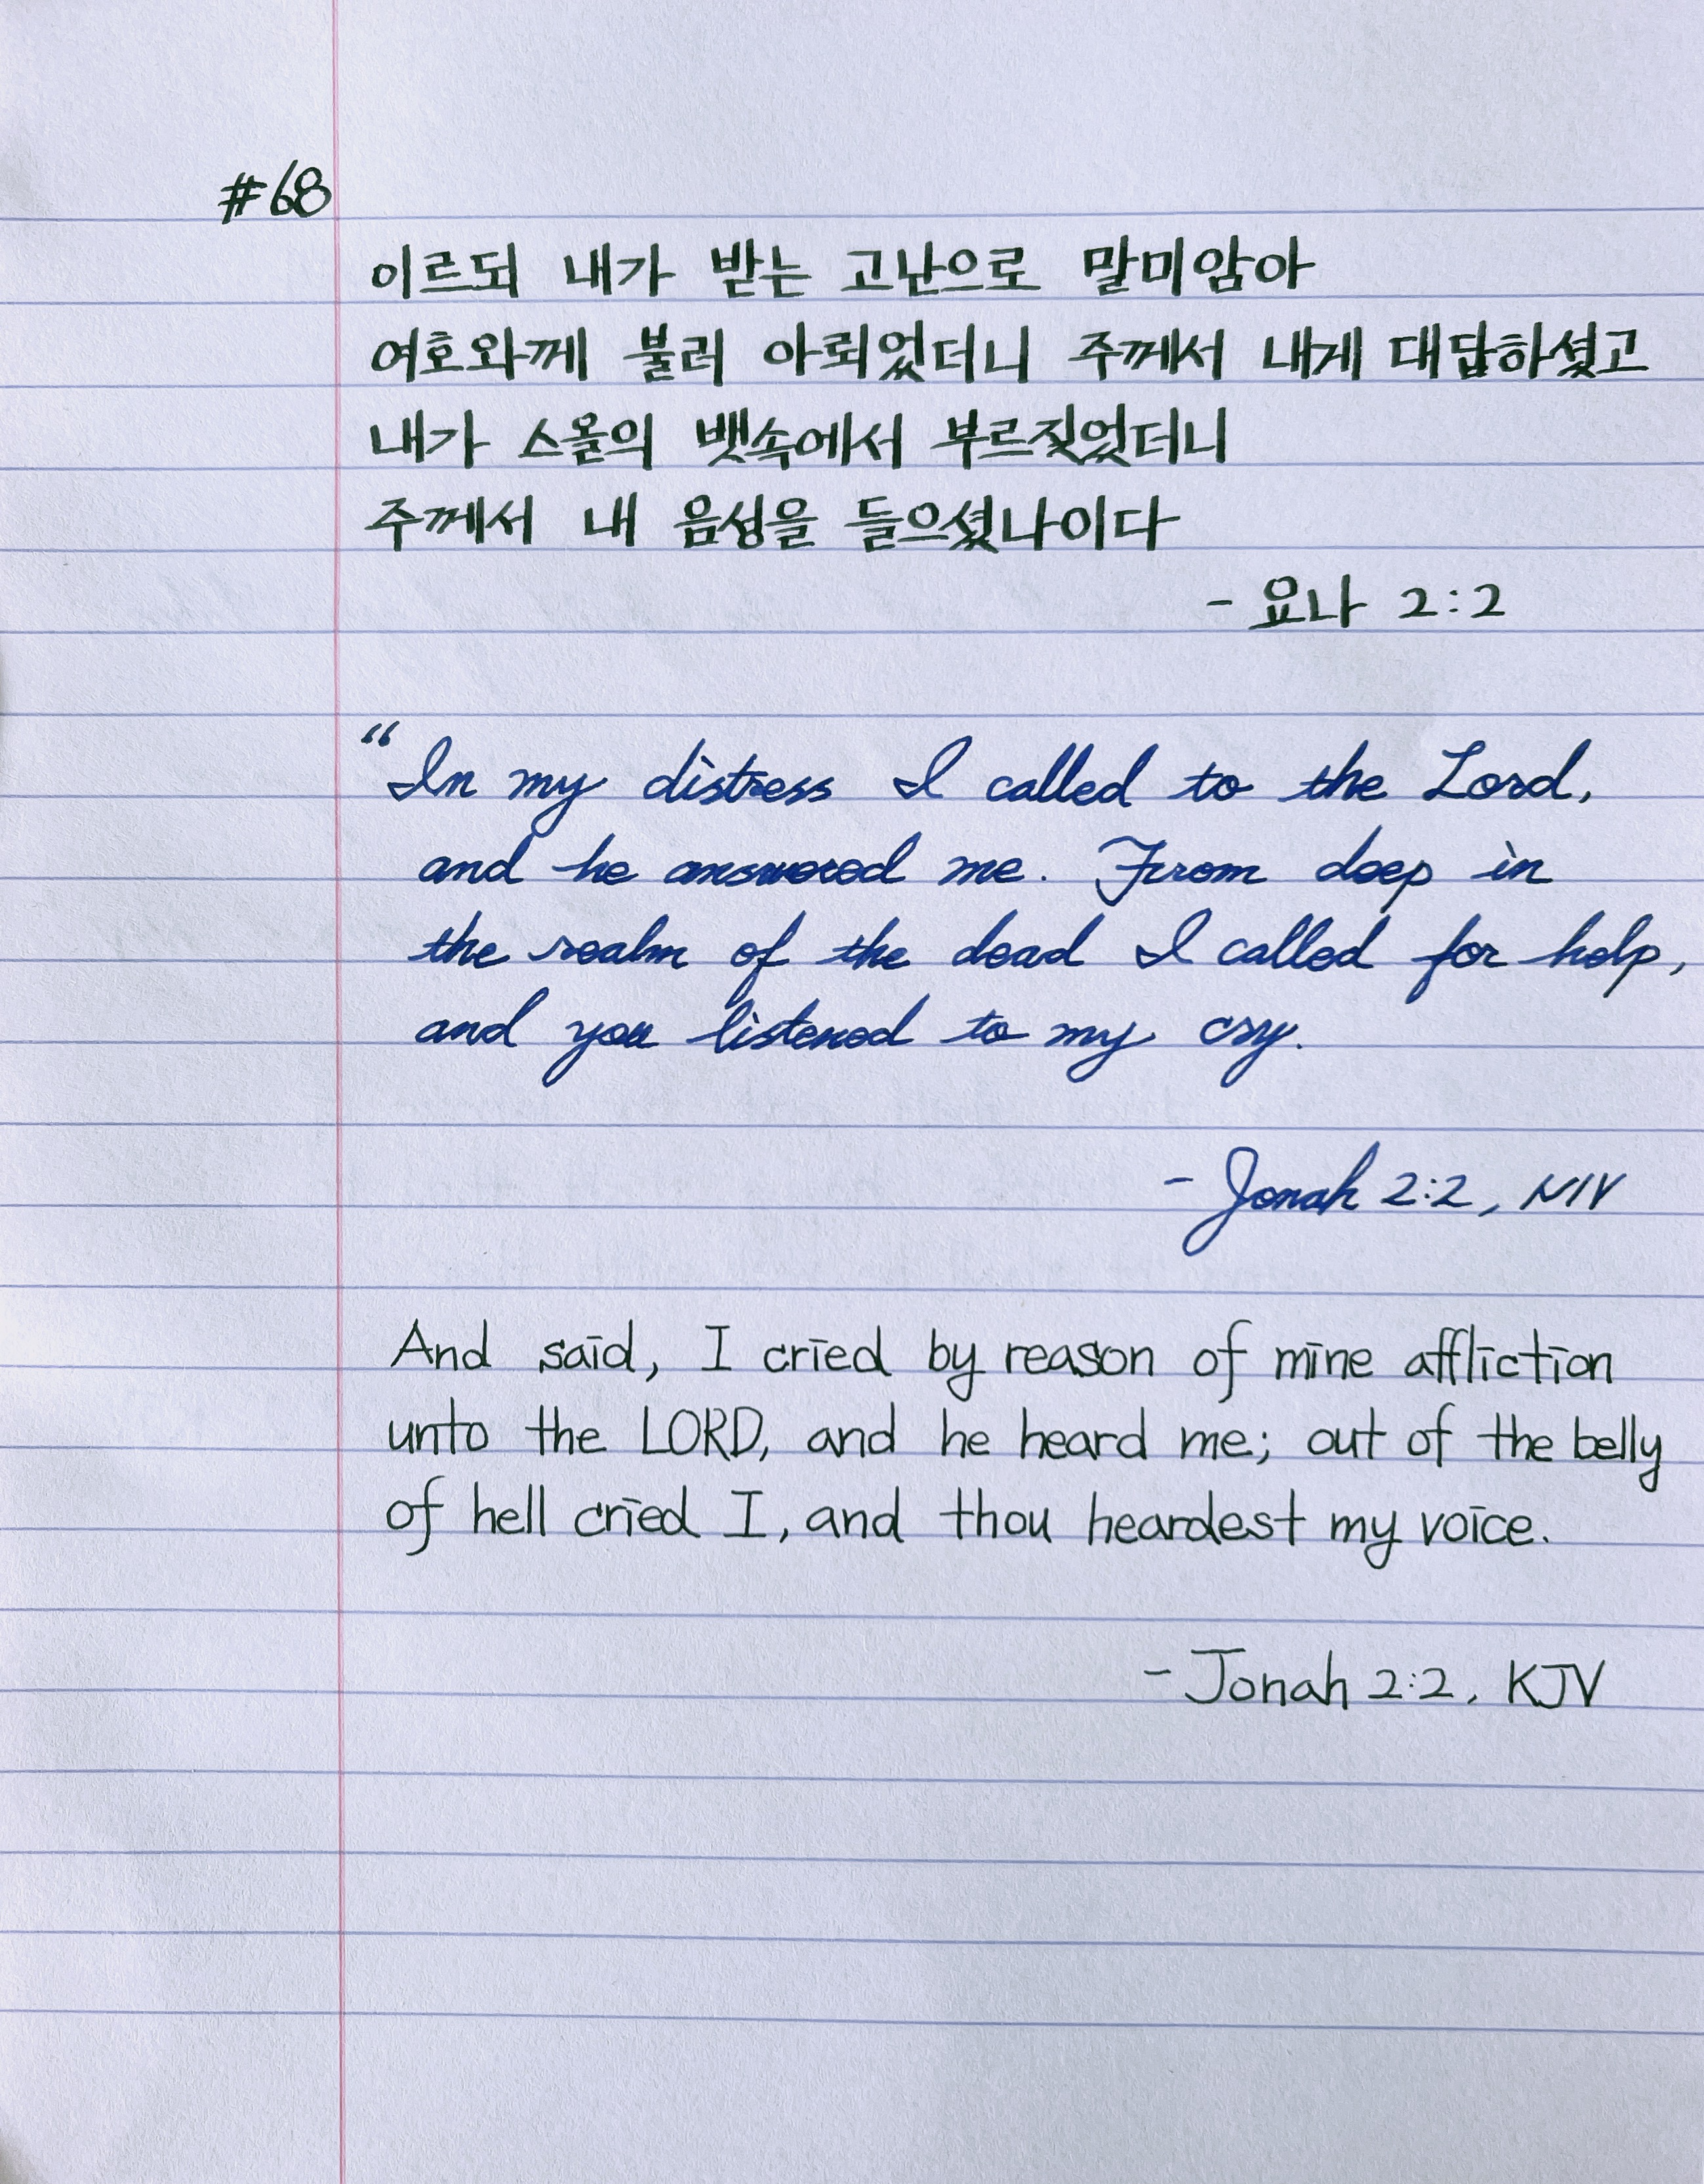 #68
이르되 내가 받는 고난으로 말미암아
여호와께 불러 아뢰었더니 주께서 내게 대답하셨고
내가 스올의 뱃속에서 부르짖었더니
주께서 내 음성을 들으셨나이다
- 요나 2:2
“In my distress I called to the Lord,
and he answered me. From deep in
the realm of the dead I called for help,
and you listened to my cry.
- Jonah 2:2, NIV
And said, I cried by reason of mine affliction
unto the LORD, and he heard me; out of the belly
of hell cried I, and thou heardest my voice.
- Jonah 2:2, KJV